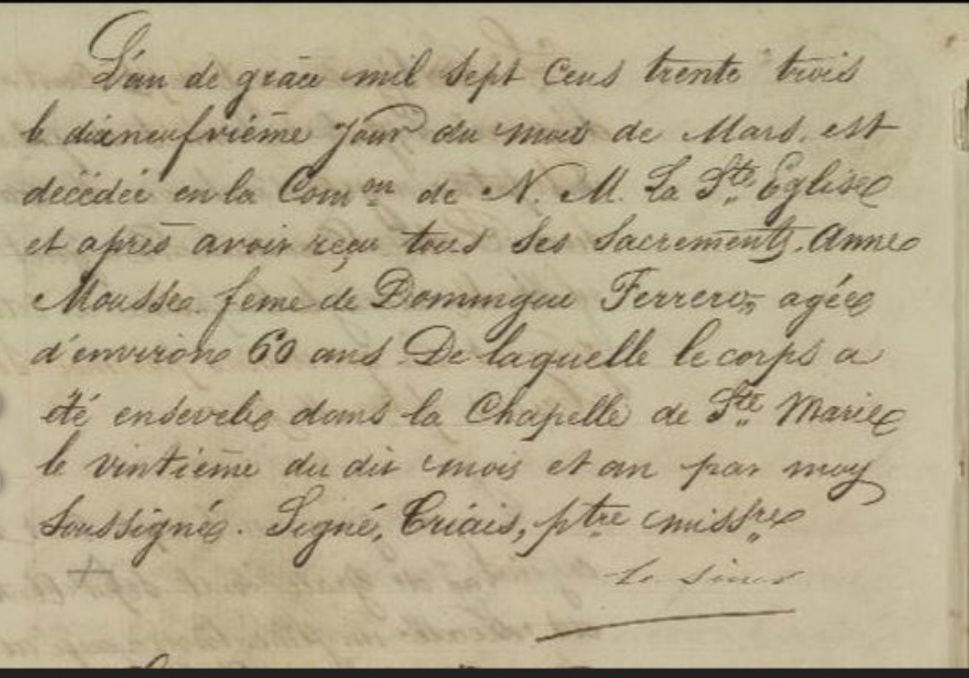 L'an de grâce mil sept cens trente trois
le dixneufvième Jour du mois de Mars, est
décédée en la Com^on de N. M. La S^te Eglise
et après avoir reçu tous ses Sacrements, Anne
Mousse, feme de Domingue Ferreros, agée
d'environ 60 ans De laquelle le corps a
été ensevelie dans la Chapelle de S^te Marie
le vintieme du dit mois et an par moy
Soussigné. Signé, Criais, p^tre miss^re